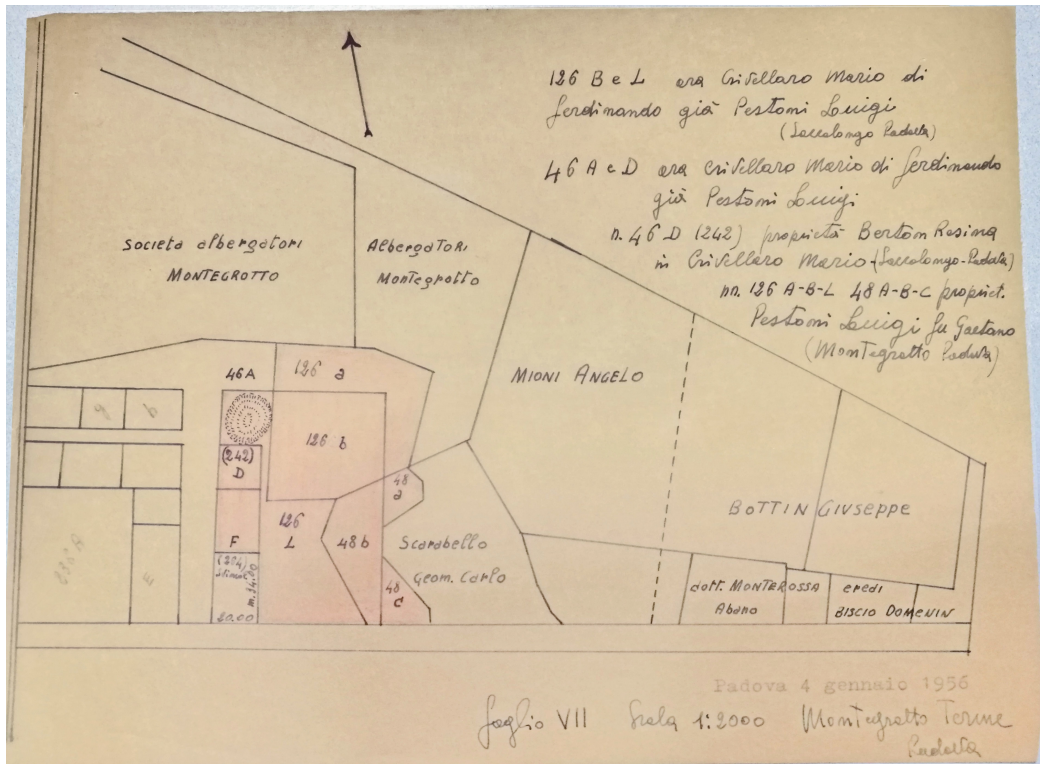 126 B e L ora Crivellaro Mario di
Ferdinando già Pestoni Luigi
(Saccolongo Padova)
46 A e D ora Crivellaro Mario di Ferdinando
già Pestoni Luigi
n. 46 D (242) proprietà Berton Rosina
in Crivellaro Mario - (Saccolongo - Padova)
nn. 126 A-B-L 48 A-B-C propriet.
Pestoni Luigi fu Gaetano
(Montegrotto Padova)
Societa albergatori
MONTEGROTTO
AlbergaTORi
Montegrotto
MIONI ANGELO
46A
126 a
126 b
(242)
D
48
a
BOTTIN GIUSEPPE
126
L
F
48 b
Scarabello
Geom. Carlo
(284)
m. 54.00
20.00
48
C
dott. MONTEROSSA
Abano
eredi
BISCIO DOMENIN
g
b
236 A
E
Padova 4 gennaio 1956
foglio VII Scala 1:2000 Montegrotto Terme
Padova